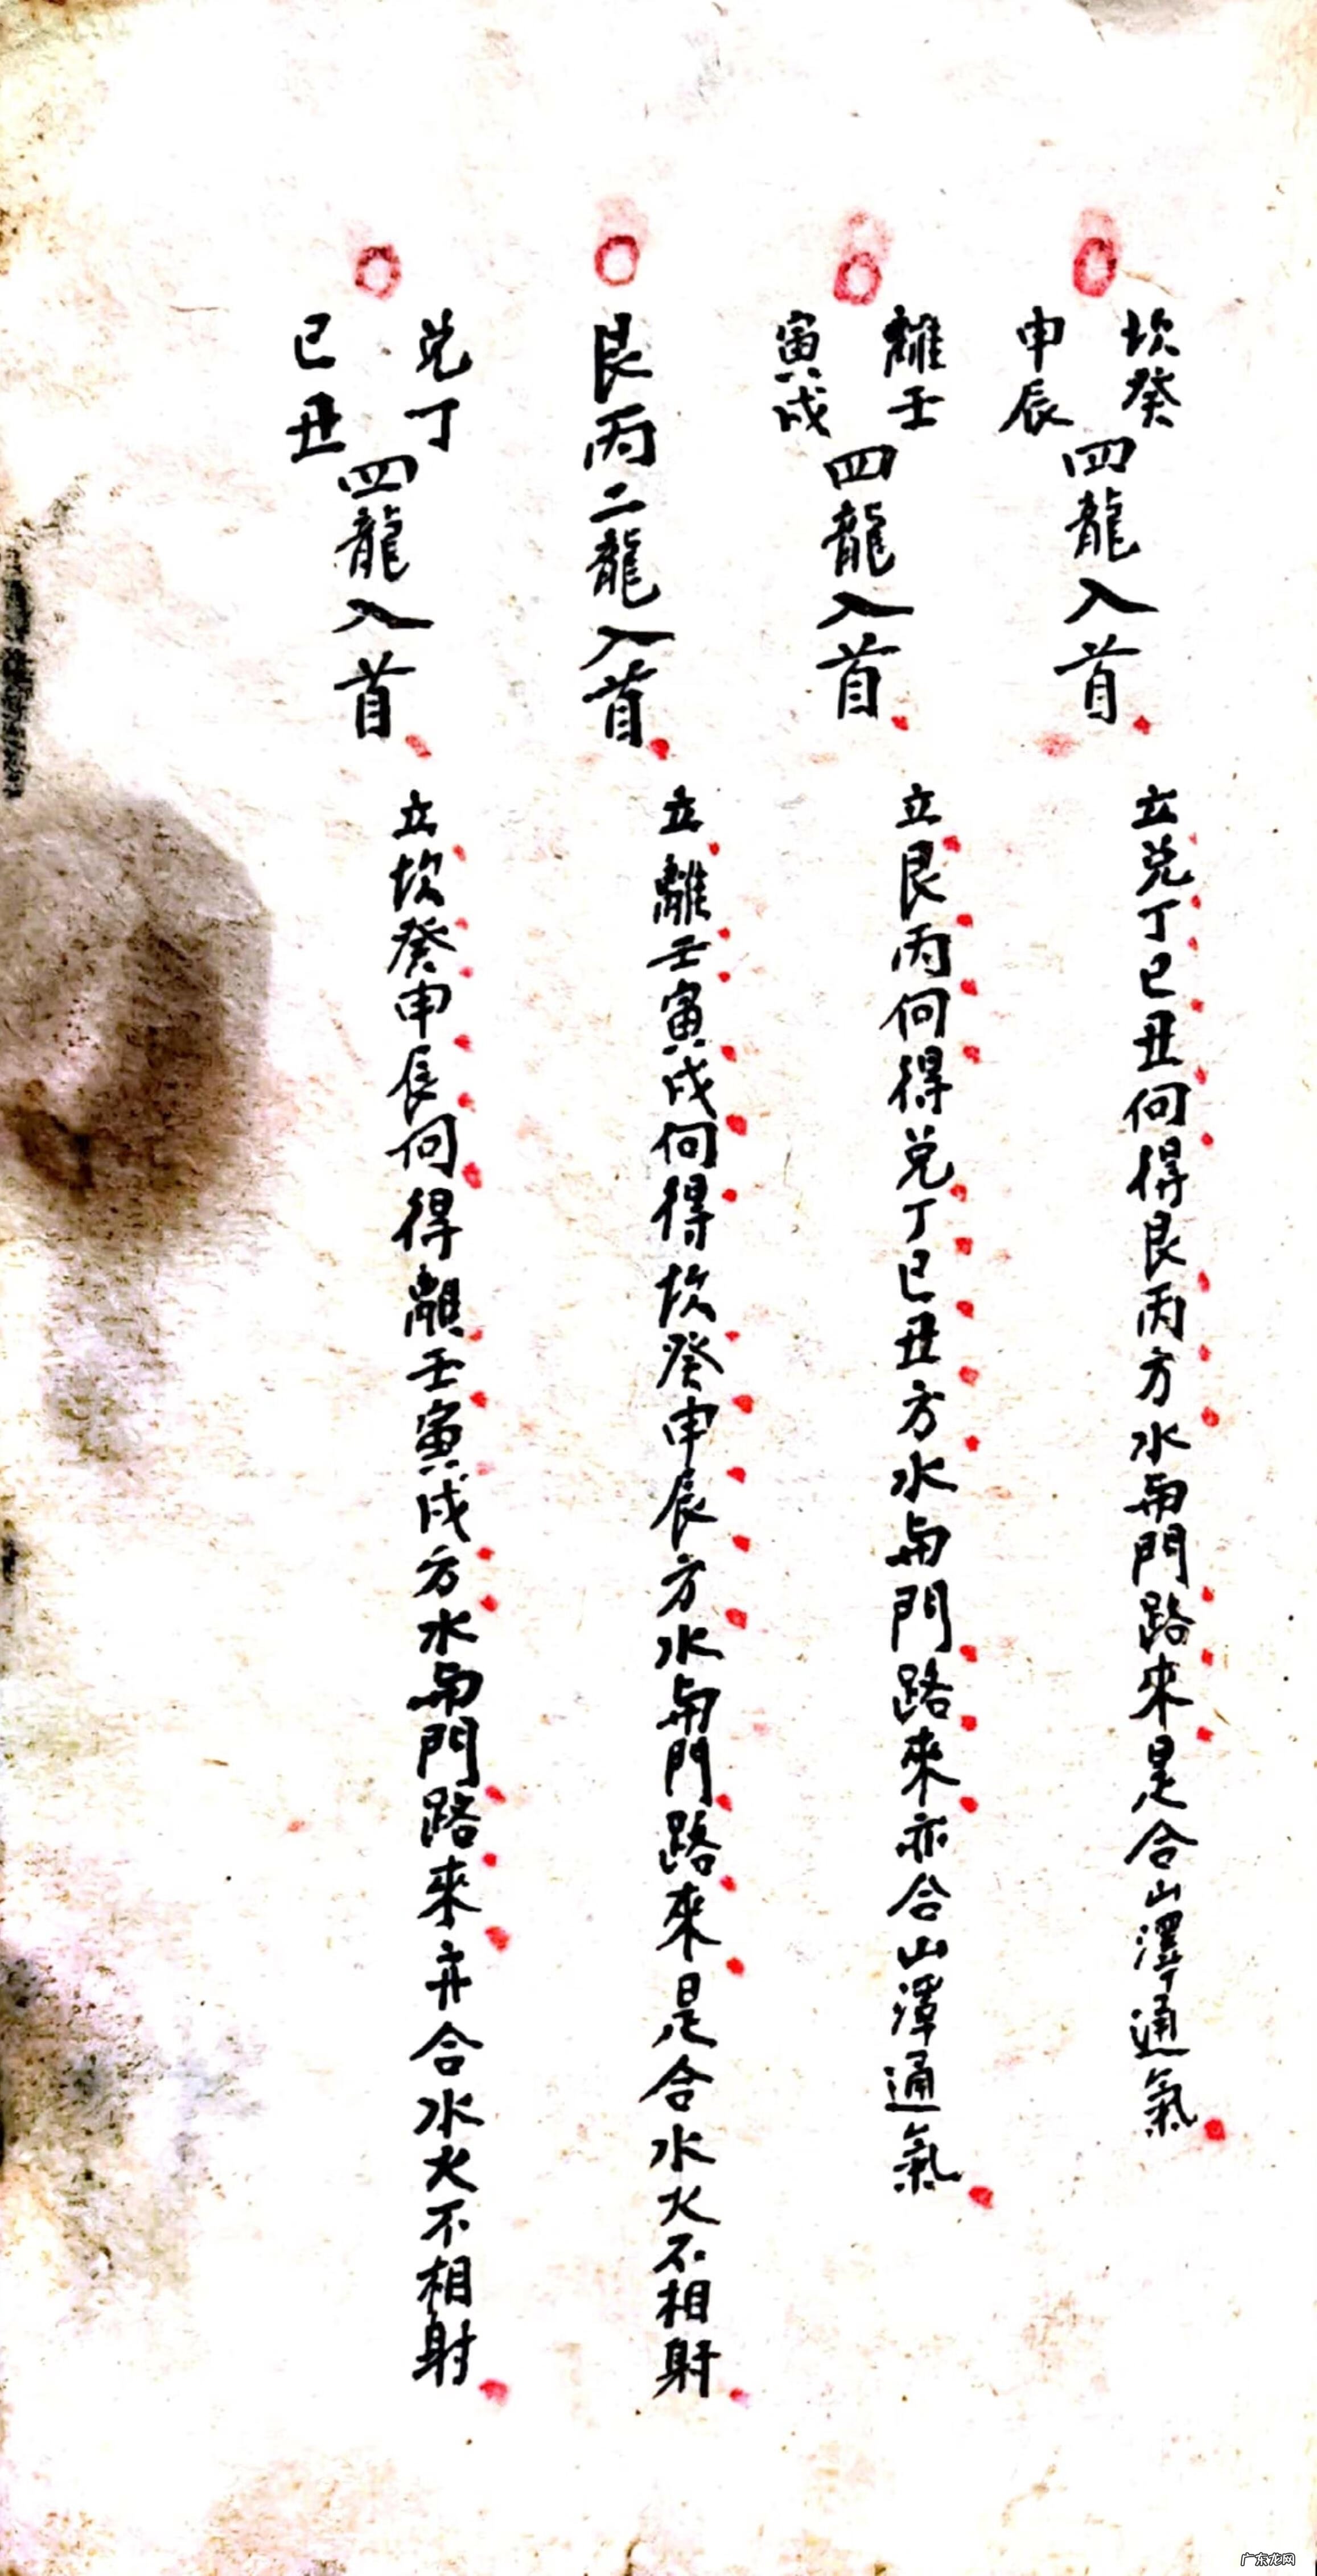 坎癸
申辰
四龍入首 立兑丁巳丑向得艮丙方水與門路來是合山澤通氣
離壬
寅戌
四龍入首 立艮丙向得兑丁巳丑方水與門路來亦合山澤通氣
艮丙二龍入首 立離壬寅戌向得坎癸申辰方水與門路來是合水火不相射
兑丁
巳丑
四龍入首 立坎癸申辰向得離壬寅戌方水與門路來亦合水火不相射
广东龙网